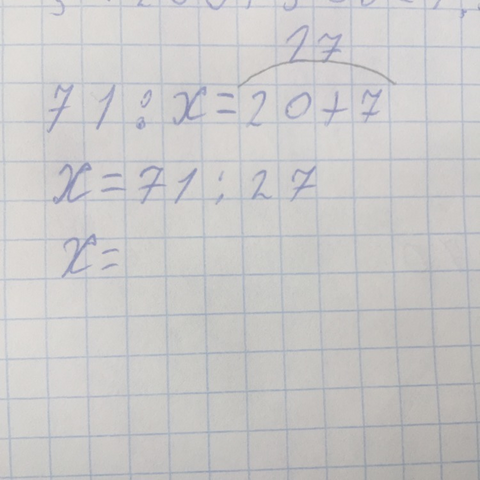 27
71 : x = 20 + 7
x = 71 : 27
x =